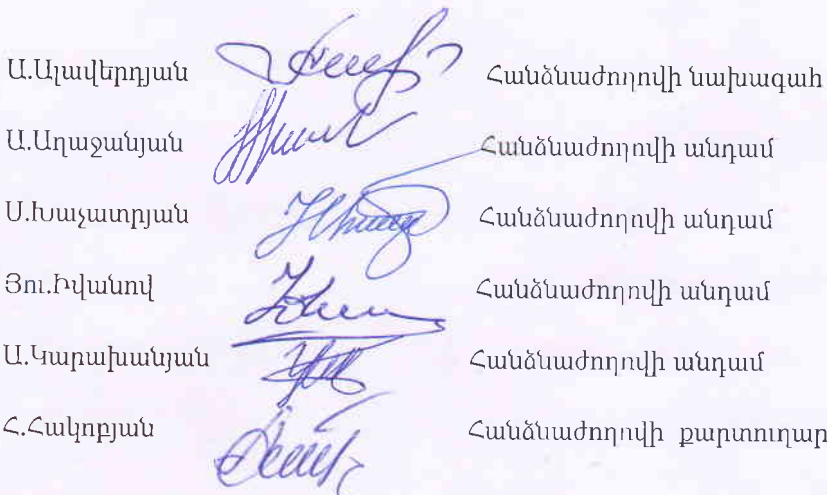 Ա.Ալավերդյան Հանձնաժողովի նախագահ
Ա.Աղաջանյան Հանձնաժողովի անդամ
Ս.Խաչատրյան Հանձնաժողովի անդամ
Յու.Իվանով Հանձնաժողովի անդամ
Ա.Կարախանյան Հանձնաժողովի անդամ
Հ.Հակոբյան Հանձնաժողովի քարտուղար